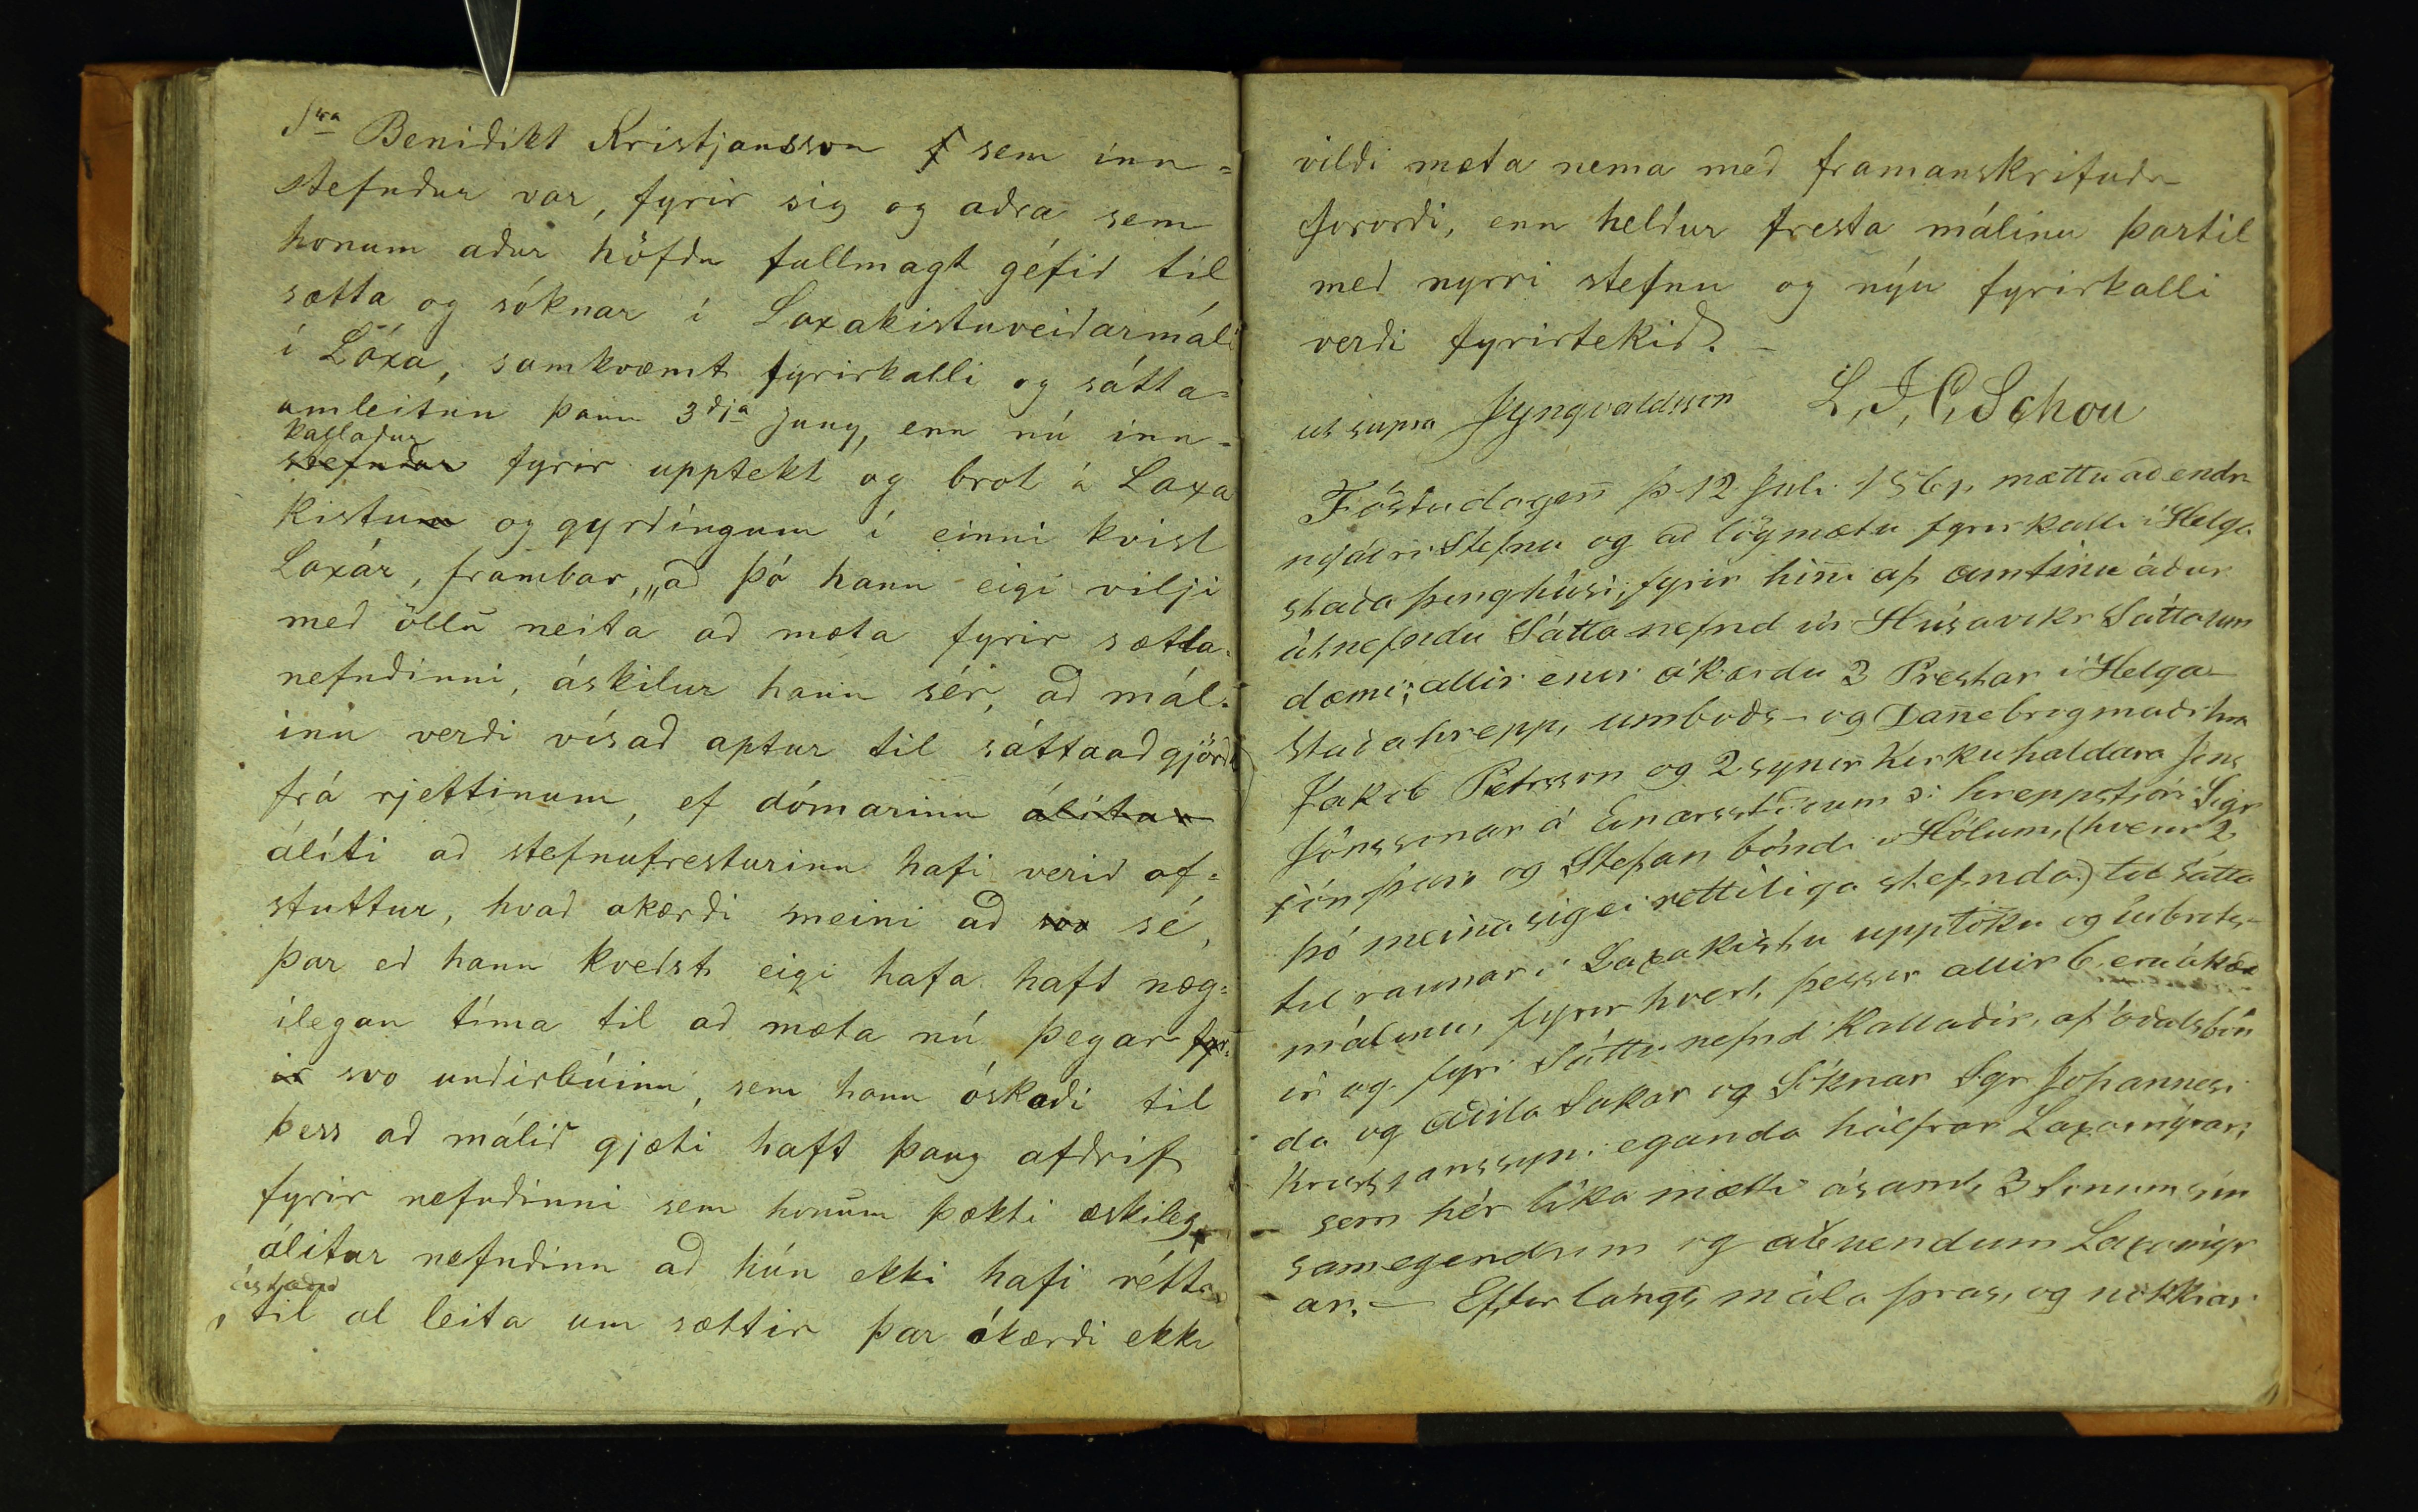 Sra Benidikt Kristjansson sem inn=
stefndur var, fyrir sig og aðra sem
honum aður höfðu fullmagt géfid til
sætta og sóknar í Laxakistuveidarmáli
í Láxa, samkvæmt fyrirkalli og sátta=
umleitun þann 3dja Juny, enn nú inn=
kalladur
stefndur fyrir upptekt og brot á Laxa
kistum og gyrdingum í einni kvisl
Laxár, frambar, „ad þó hann eigi vilji
med öllu neita ad mæta fyrir sætta=
nefndinni, áskilur hann sér, ad mál=
inu verdi vísad aptur til sáttaadgjörda
frá rjettinum, ef dómarinn álítur
álíti ad stefnufresturinn hafi verid of=
stuttur, hvad akærði meini ad svo sé,
þar ed hann kvedst eigi hafa haft næg=
ilegan tíma til ad mæta nú þegar fyr=
ir svo undirbúinn, sem hann óskadi til
þess ad málid gjæti haft þaug afdrif
fyrir nefndinni sem honum þækti æskileg,
álitur nefndinn ad hún ekki hafi rétta
ástædu
til al leita um sættir þar ákærdi ekki
vildi mæta nema med framanskrifudu
fororði, enn heldur fresta málinu þartil
med nyrri stefnu og nýu fyrirkalli
verdi fyrirtekid. –
ut supra JYngvaldsson L. J. C. Schou
Föstudagen þ 12 Juli 1861, mættu ad endr
nýáðri Stefnu og ad lögmætu fyrirkalli í Helga
staða þinghúsi, fyrir hinni af amtinu áður
útnefndu Sátta nefnd úr Húsavikr Sáttaum
dæmi; allir enir ákærdu 3 Prestar í Helga-
staðahrepp, umboðs- og Dannebrogmaðr hra
Jakob Petrsson og 2 synir Kirkuhaldara Jons
Jónssonar á Einarsstöðum ɔ: hreppstjóri Sigr
jón þar og Stefan bóndi á Hólum, (hverir 2
þó meina sig ei rettiliga stefnda) til Sátta
til raunar í Laxakistu upptöku og úrbrots-
málinu, fyrir hvert þessir allir 6 eru ákær
ir og fyri Sátta nefnd Kallaðir, af óðalsbón
da og aðila Sakar og Sóknar Sgr Johannesi
Kristjanssyni eganda hálfrar Laxamýrar,
sem hér lika mætti ásamt 3 Sonum sin
samegendum og abuendum Laxamýr
ar. — Eftir langt mála þras, og nokkrar